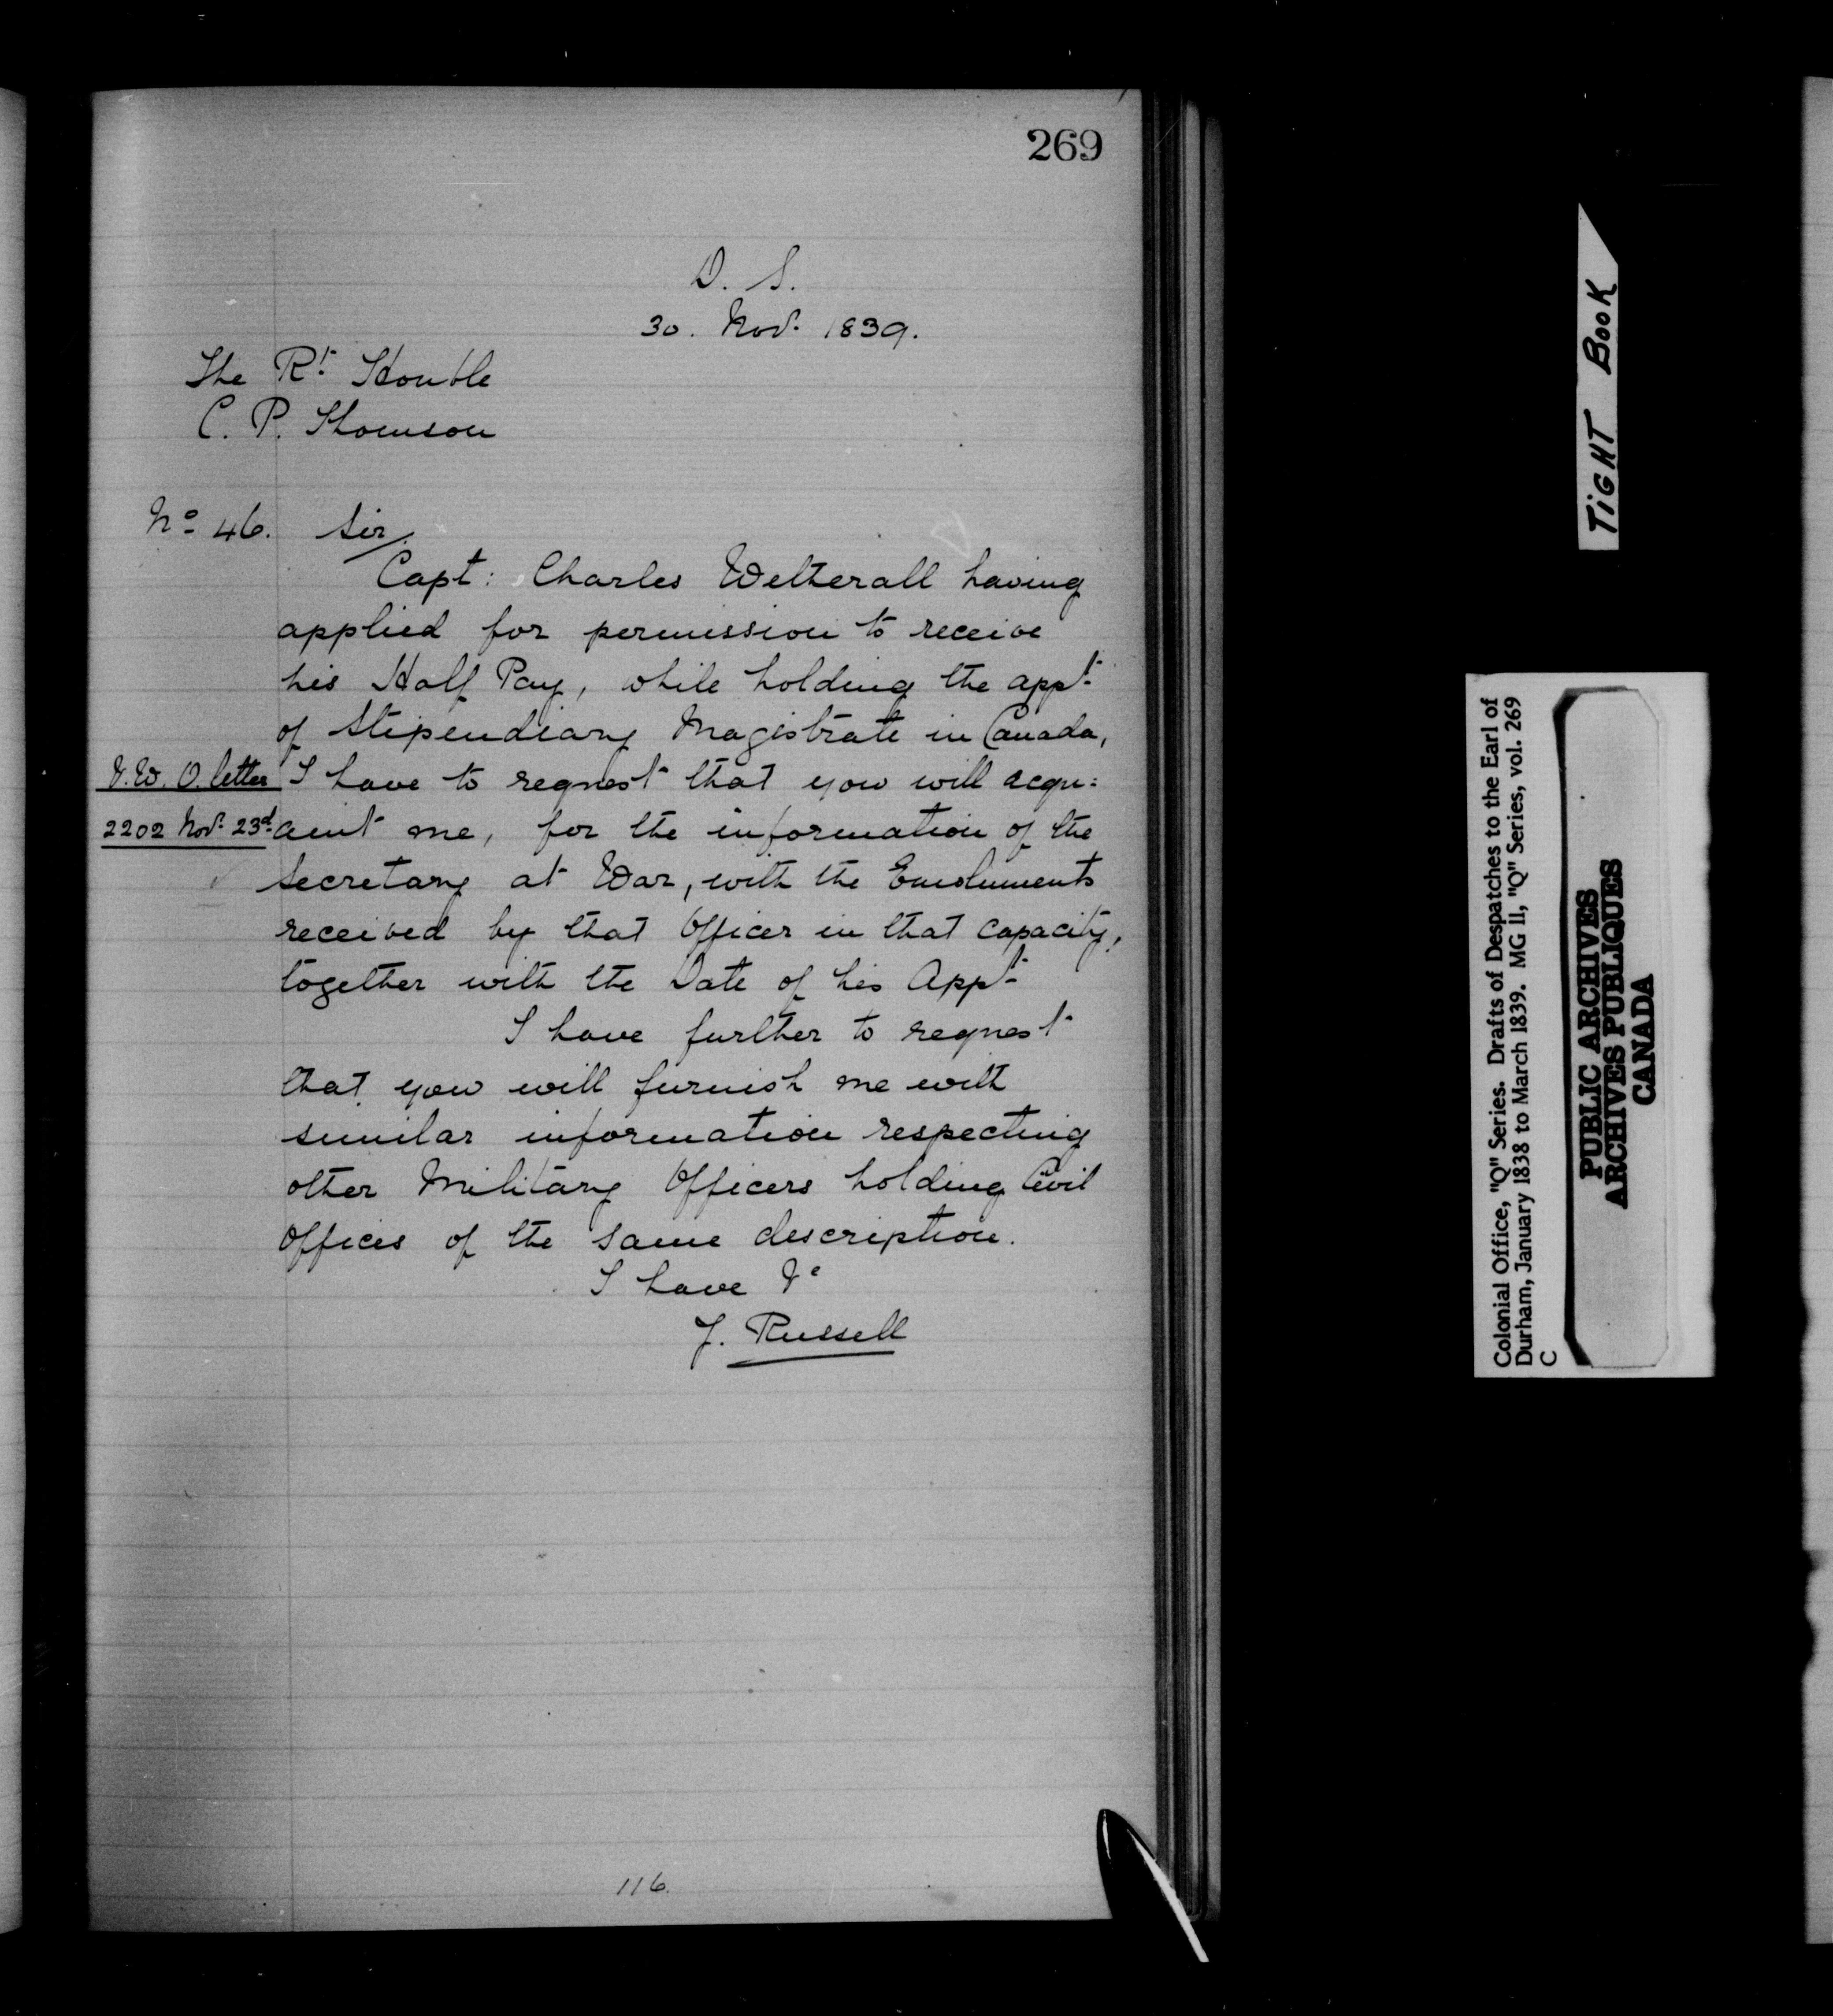 269
D. S.
30. Nov. 1839.
The Rt. Honble
C. P. Thomson
No. 46. Sir,
Capt: Charles Wetherall having
applied for permission to receive
his Half Pay, while holding the appt.
of Stipendiary Magistrate in Canada,
I have to request that you will acqu=
aint me, for the information of the
Secretary at War, with the Emoluments
received by that Officer in that capacity,
together with the Date of his Appt.
W. O. letter
2202 Nov. 23d.
I have further to request
that you will furnish me with
similar information respecting
other Military Officers holding Civil
Offices of the same description.
I have &c
J. Russell
116.
TIGHT BOOK
Colonial Office, "Q" Series. Drafts of Despatches to the Earl of
Durham, January 1838 to March 1839. MG 11, "Q" Series, vol. 269
C
PUBLIC ARCHIVES
ARCHIVES PUBLIQUES
CANADA